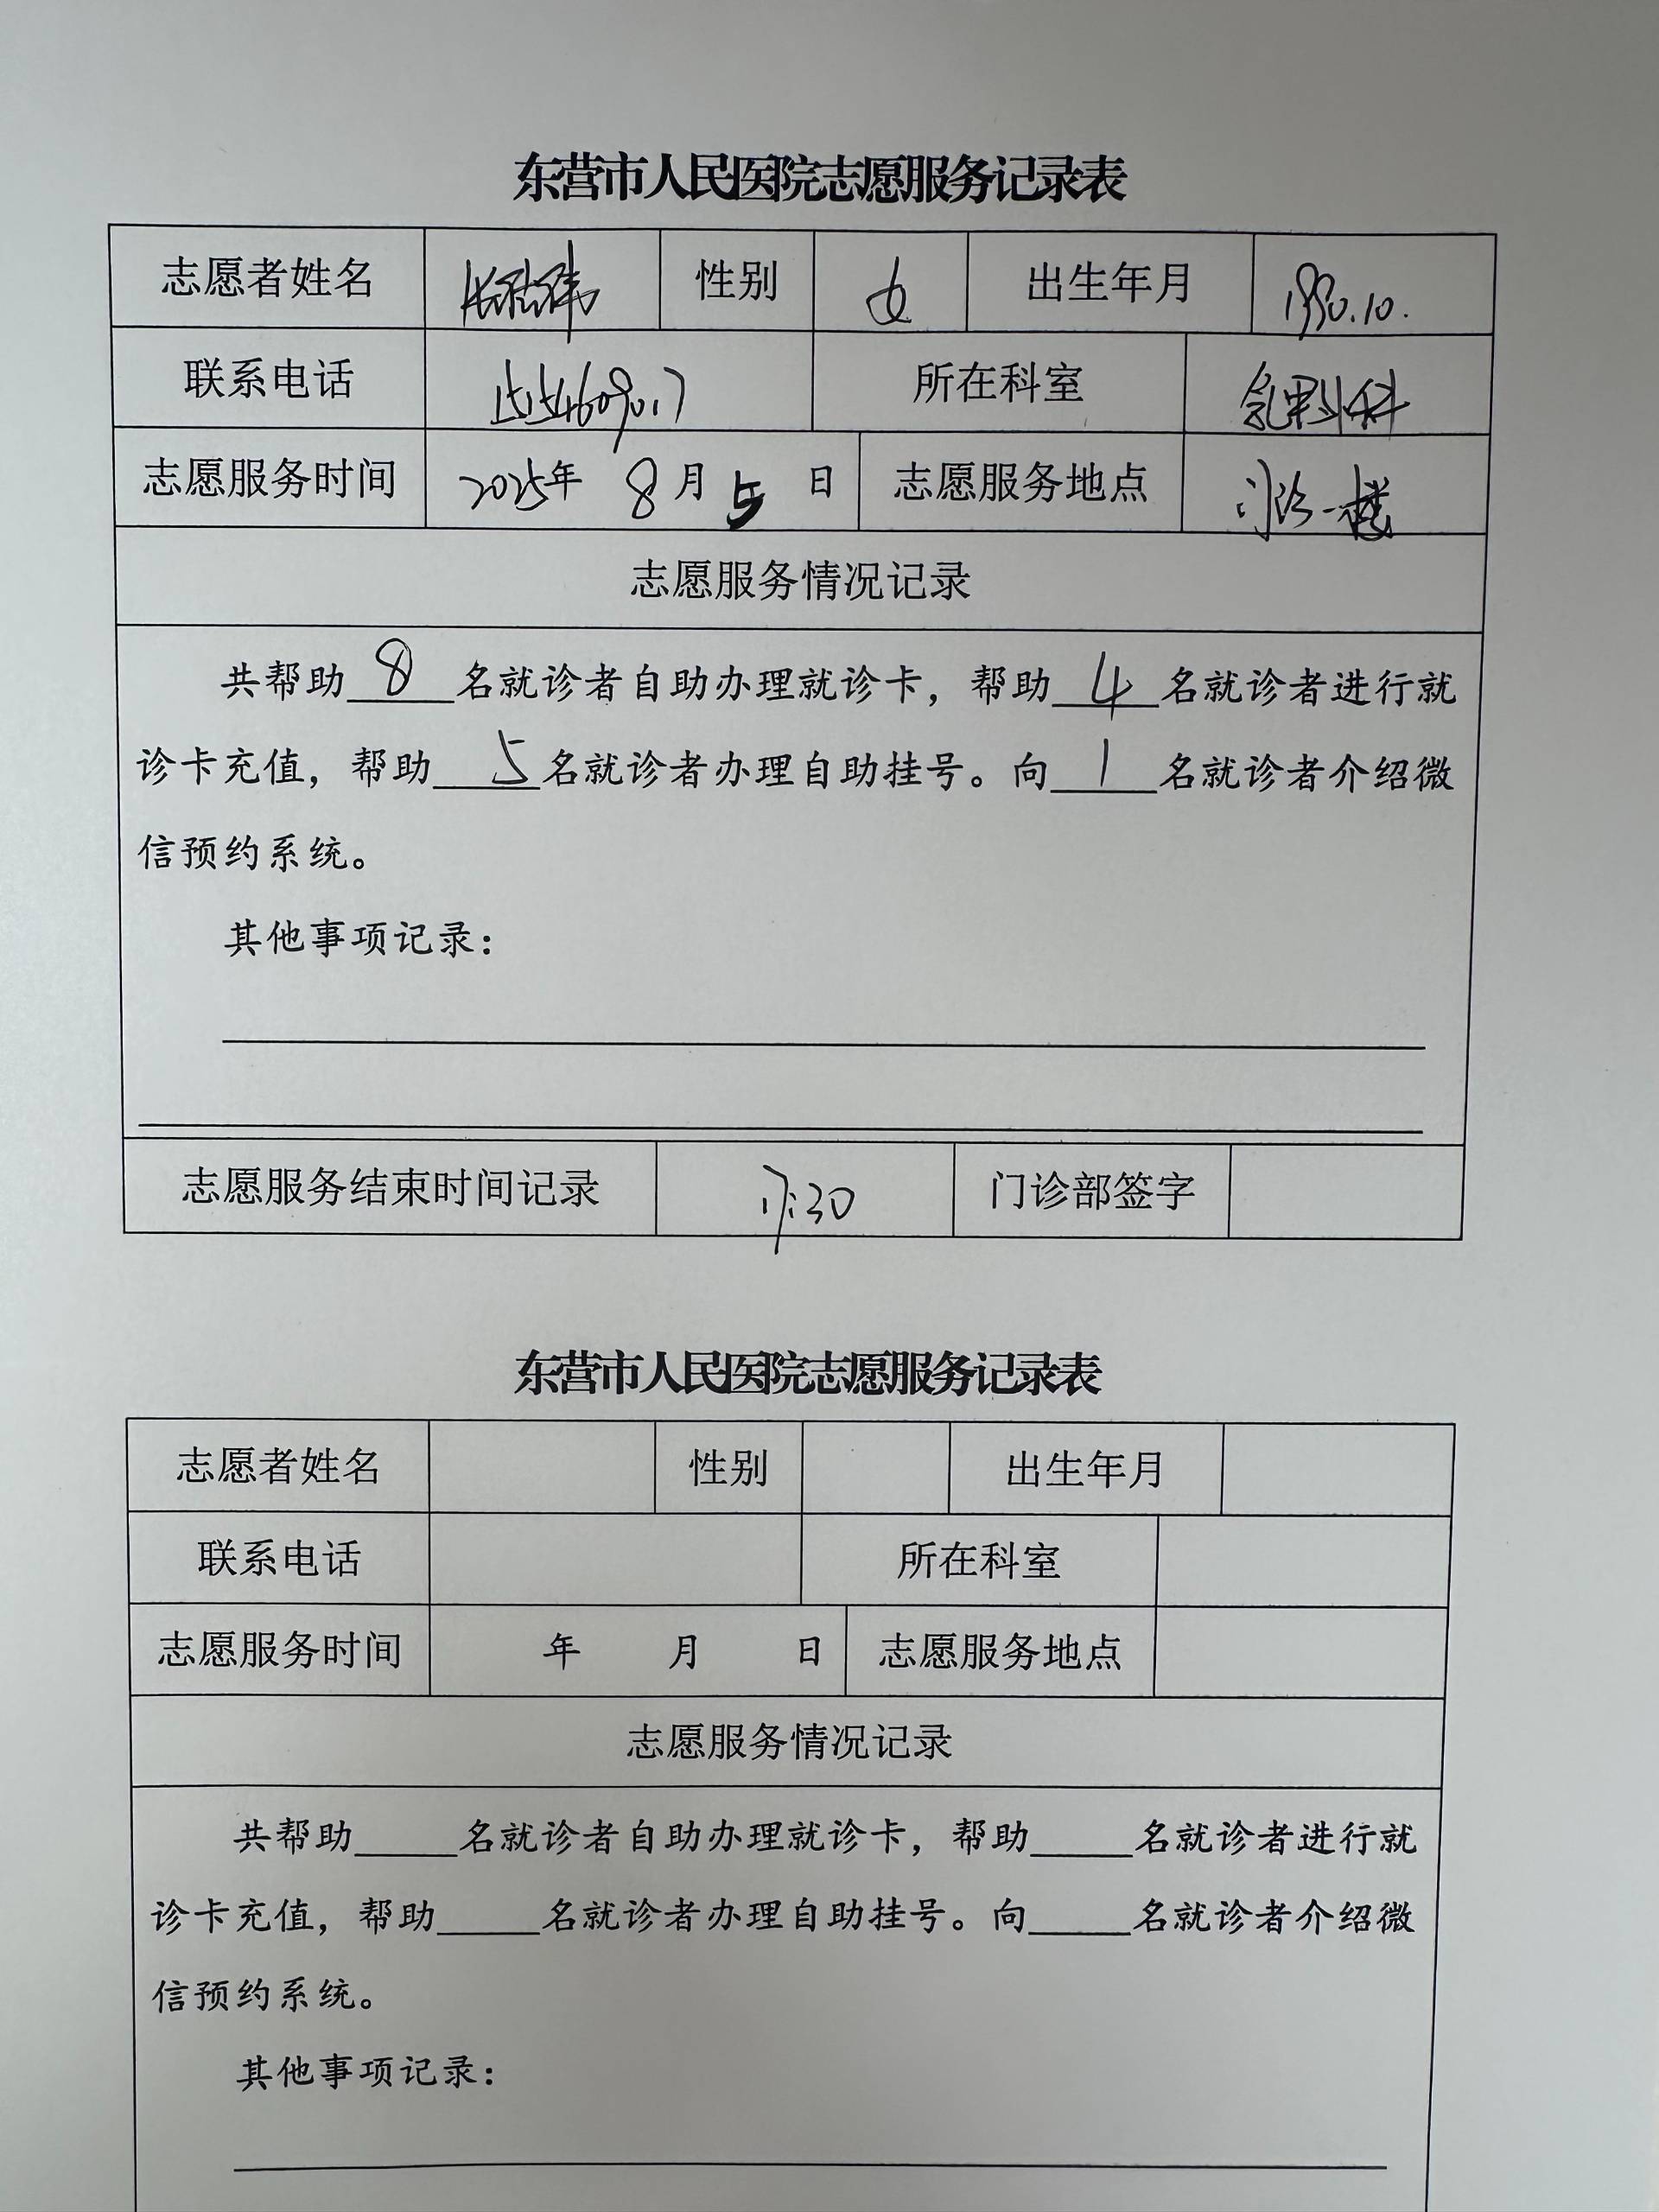 东营市人民医院志愿服务记录表
志愿者姓名 性别 女 出生年月 1990.10.
联系电话 所在科室
志愿服务时间 2025年 8月5日 志愿服务地点 门诊一楼
志愿服务情况记录
共帮助 8 名就诊者自助办理就诊卡，帮助 4 名就诊者进行就
诊卡充值，帮助 5 名就诊者办理自助挂号。向 1 名就诊者介绍微
信预约系统。
其他事项记录：
志愿服务结束时间记录 17:30 门诊部签字
东营市人民医院志愿服务记录表
志愿者姓名 性别 出生年月
联系电话 所在科室
志愿服务时间 年 月 日 志愿服务地点
志愿服务情况记录
共帮助_____名就诊者自助办理就诊卡，帮助_____名就诊者进行就
诊卡充值，帮助_____名就诊者办理自助挂号。向_____名就诊者介绍微
信预约系统。
其他事项记录：